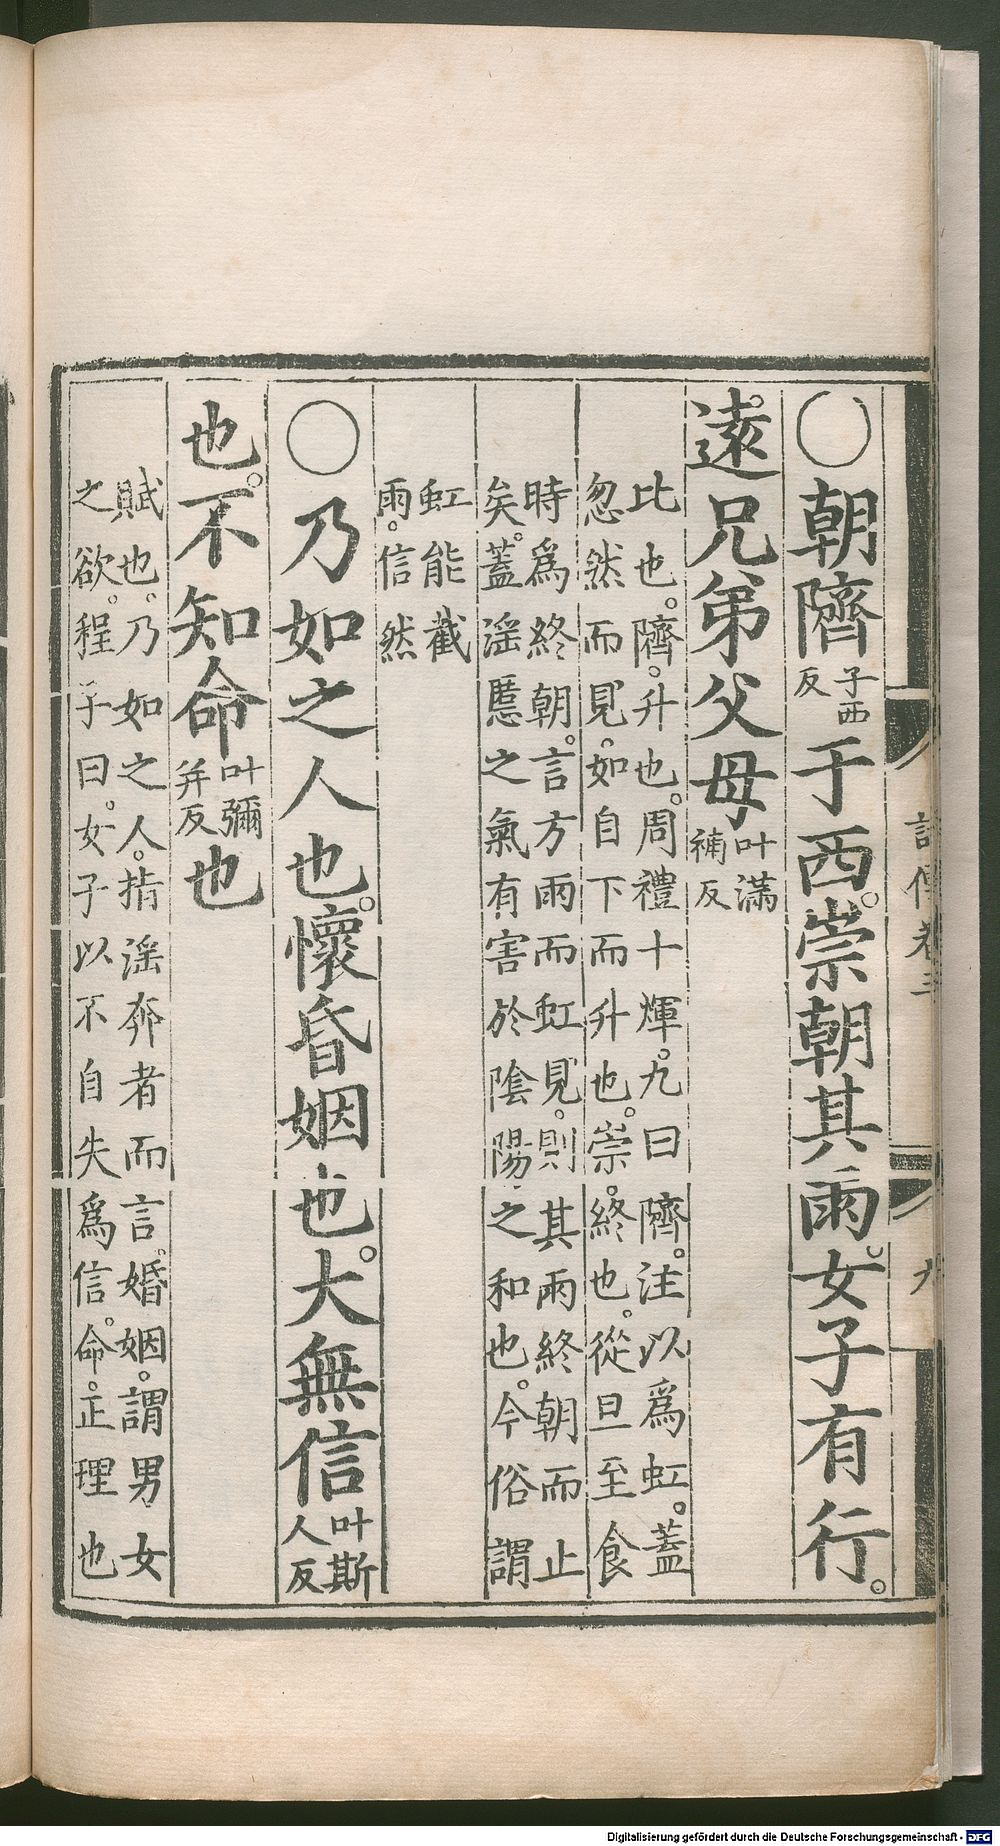 〇朝隮子西反于西。崇朝其雨。女子有行。
遠兄弟父母叶滿補反
比也。隮。升也。周禮十煇。九曰隮。注以爲虹。蓋
忽然而見。如自下而升也。崇。終也。從旦至食
時爲終朝。言方雨而虹見。則其雨終朝而止
矣。蓋淫慝之氣有害於陰陽之和也。今俗謂
虹能截
雨。信然
〇乃如之人也。懷昏姻也。大無信叶斯人反
也。不知命叶彌并反也
賦也。乃如之人。指淫奔者而言。婚姻。謂男女
之欲。程子曰。女子以不自失爲信。命。正理也
詩傳卷三
九
Digitalisierung gefördert durch die Deutsche Forschungsgemeinschaft - DFG